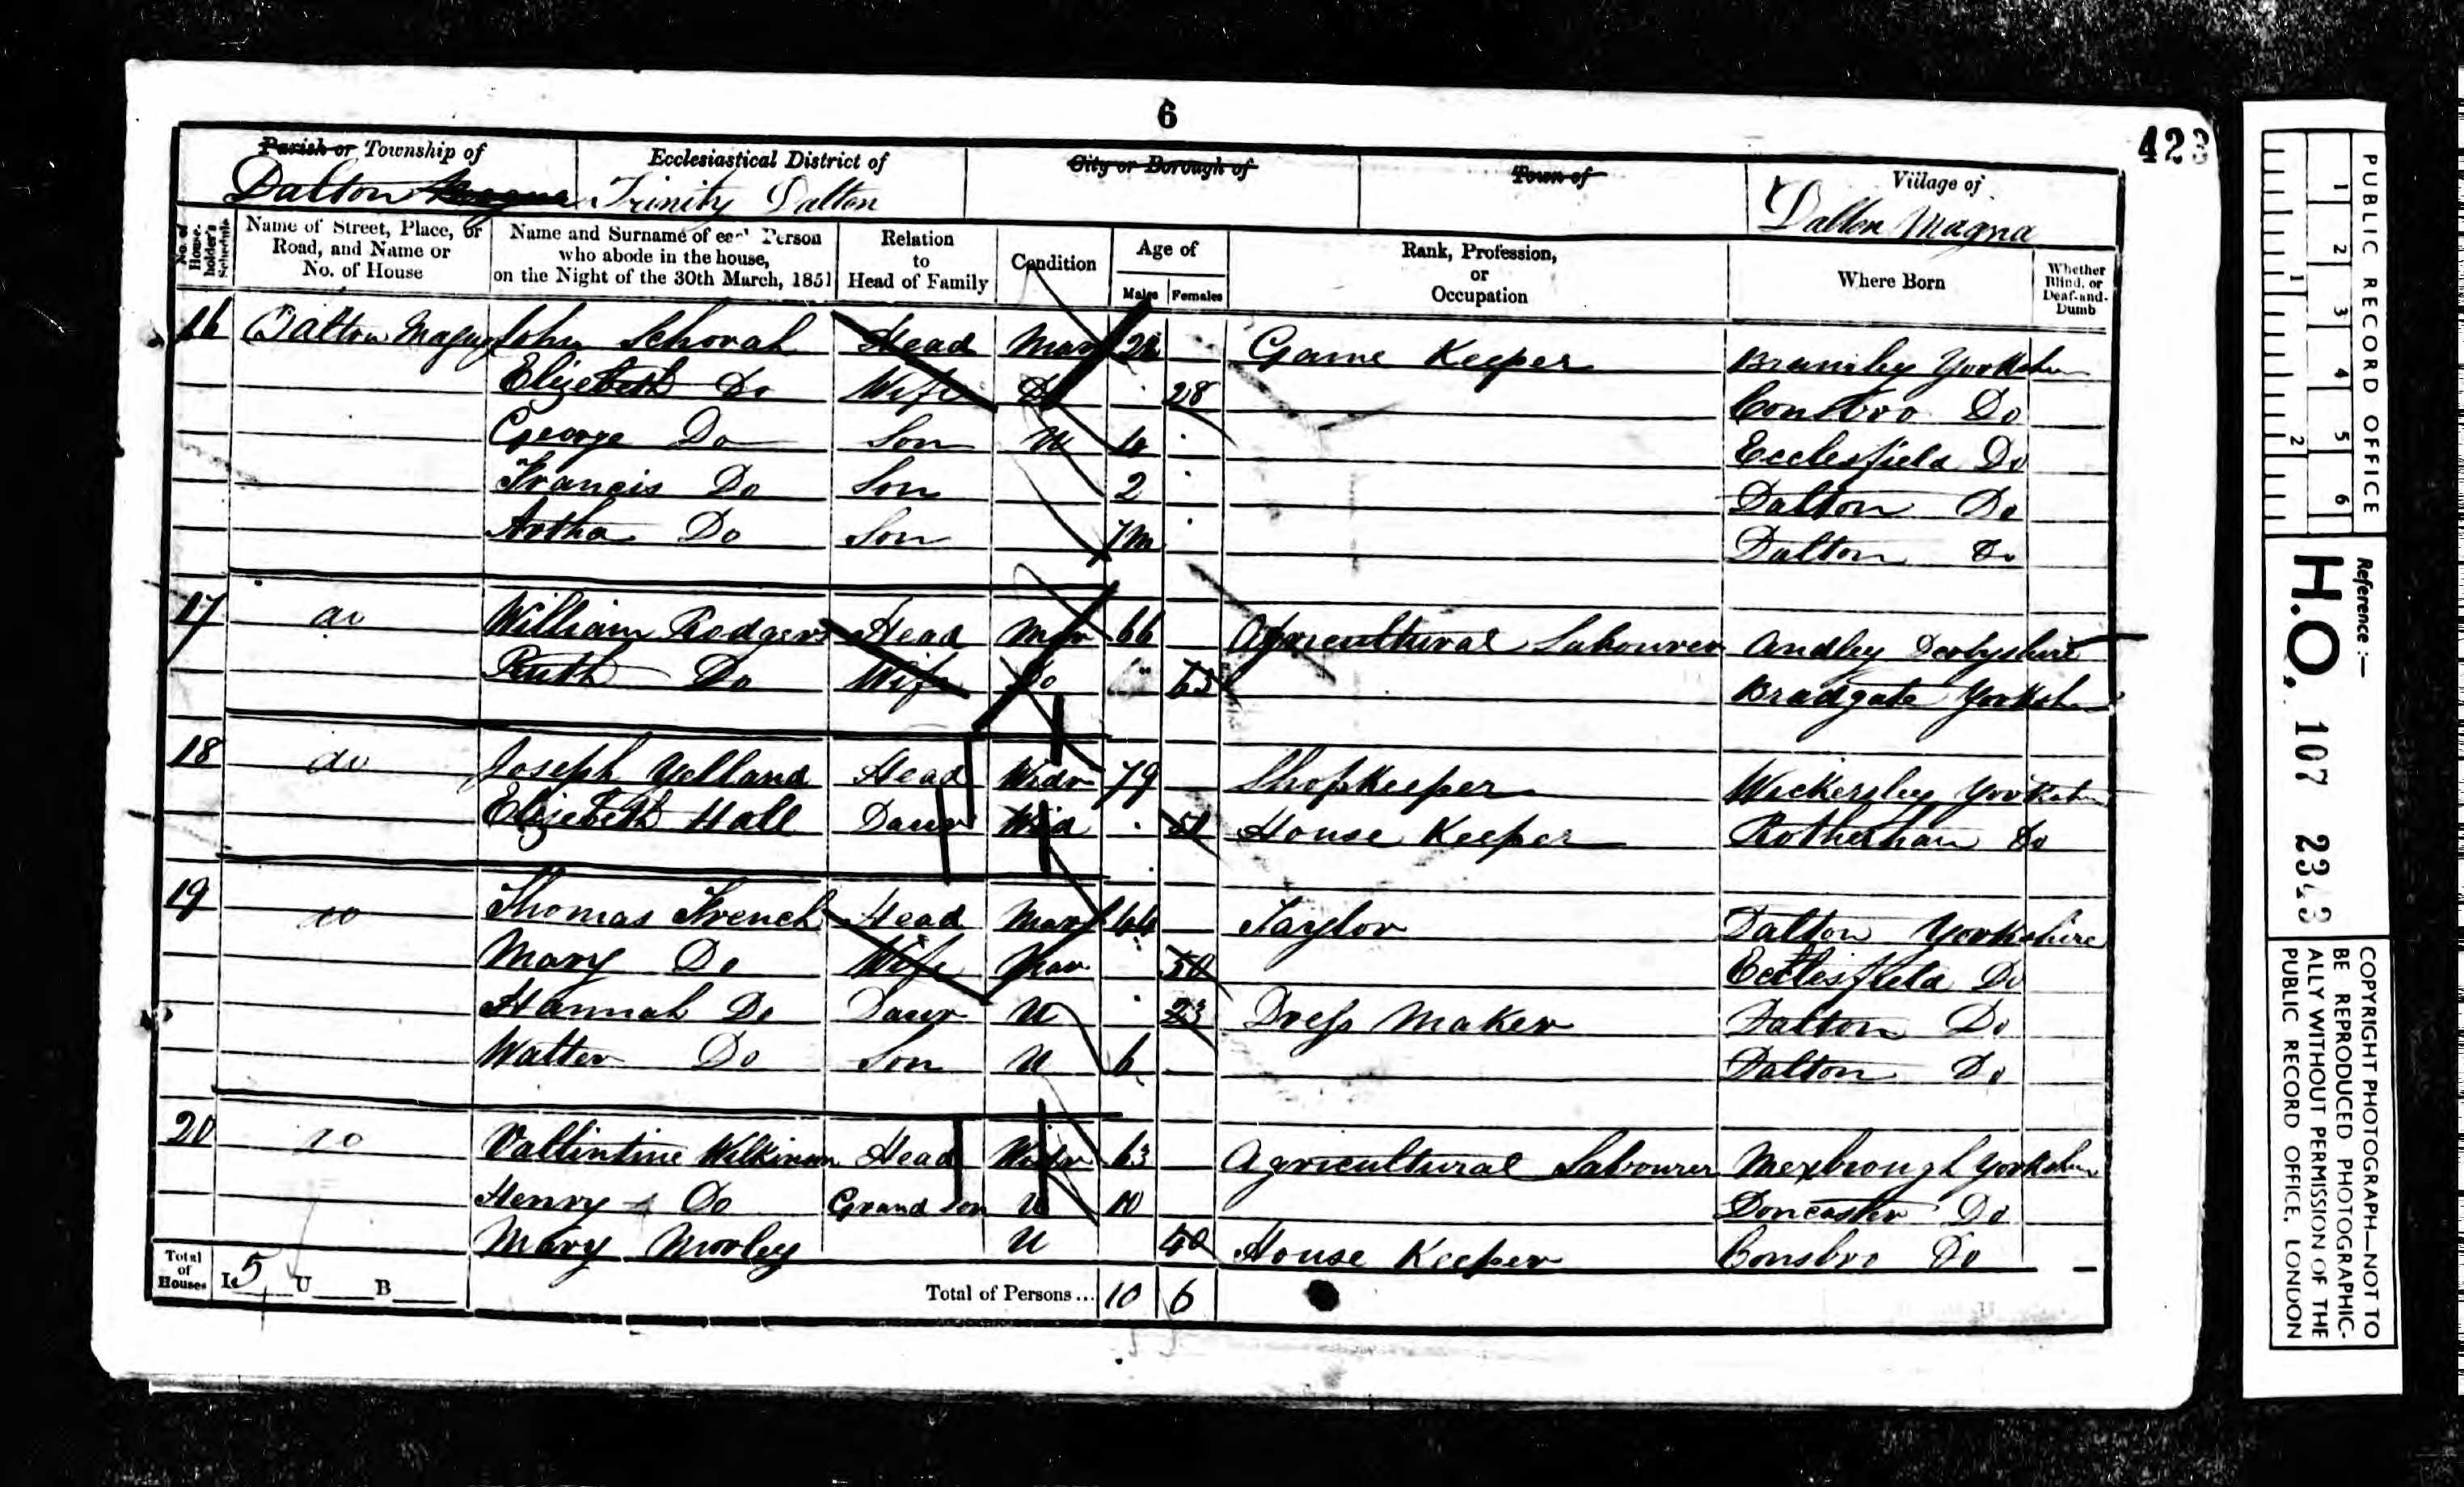 6
423
Parish or Township of
Ecclesiastical District of
City or Borough of
Town of
Village of
Dalton Magna
Trinity Dalton
Dalton Magna
No. of House-holder's Schedule
Name of Street, Place, or Road, and Name or No. of House
Name and Surname of each Person who abode in the house, on the Night of the 30th March, 1851
Relation to Head of Family
Condition
Age of
Males
Females
Rank, Profession, or Occupation
Where Born
Whether Blind, or Deaf-and-Dumb
16 Dalton Magna John Schorah Head Mar Game Keeper Bramley Yorkshire
Elizebeth Do Wife Do 28 Consbro Do
George Do Son U Ecclesfield Do
Francis Do Son 2 Dalton Do
Artha Do Son 7m Dalton Do
17 do William Rodgers Head Mar 66 Agricultural Labourer Derbyshire
Ruth Do Wife Do 63 Bradgate Yorkshr
18 do Joseph Yelland Head Widr 79 Shopkeeper Wickersley Yorksh
Elizebeth Hall Daur Wid House Keeper Rotherham Do
19 do Thomas French Head Mar 44 Taylor Dalton Yorkshire
Mary Do Wife Mar 50 Ecclesfield Do
Hannah Do Daur U 23 Dress Maker Dalton Do
Walter Do Son U 6 Dalton Do
20 do Vallintine Wilkinson Head Widr 63 Agricultural Labourer Mexbrough Yorkshr
Henry Do Grand Son U 10 Doncaster Do
Mary Morley U 40 House Keeper Consbro Do
Total of Houses I 5 U B Total of Persons... 10 6
PUBLIC RECORD OFFICE
1 2 3 4 5 6
1 2
Reference:—
H.O. 107 2343
COPYRIGHT PHOTOGRAPH—NOT TO
BE REPRODUCED PHOTOGRAPHIC-
ALLY WITHOUT PERMISSION OF THE
PUBLIC RECORD OFFICE, LONDON